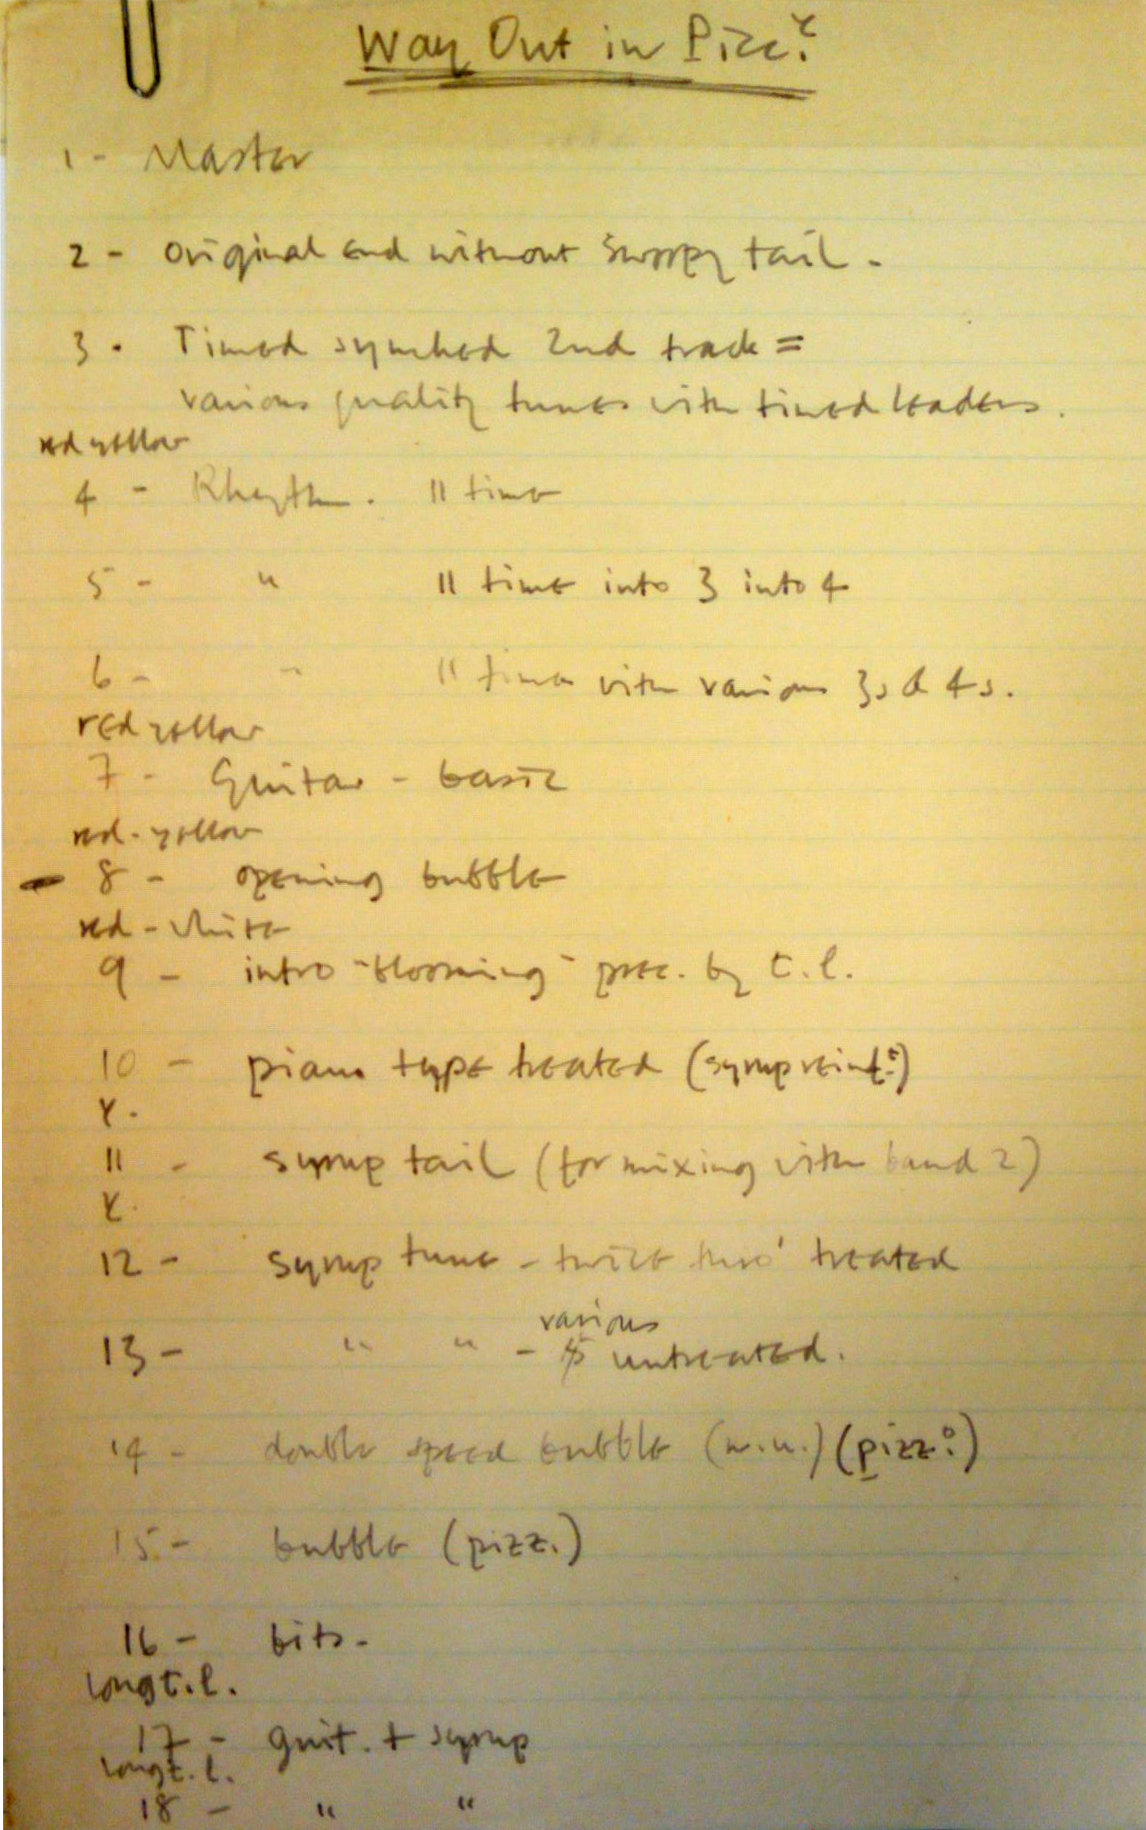 Way Out in Pizz?
1 - Master
2 - Original end without swoopy tail -
3 - Timed synched 2nd track =
various quality tunes with timed leaders.
red yellow
4 - Rhythm. 11 time
5 - " 11 time into 3 into 4
6 - " 11 time with various 3s & 4s.
red yellow
7 - Guitar - basic
red - yellow
- 8 - opening bubble
red - white
9 - intro "blooming" prec. by t.l.
10 - piano type treated (syrup
Y.
11 - syrup tail (for mixing with band 2)
Y.
12 - syrup tune - twice thro' treated
various
13 - " " - untreated.
14 - double speed bubble (w.u.) (pizz?)
15 - bubble (pizz.)
16 - bits -
long t.l.
17 - guit. + syrup
long t.l.
18 - " "